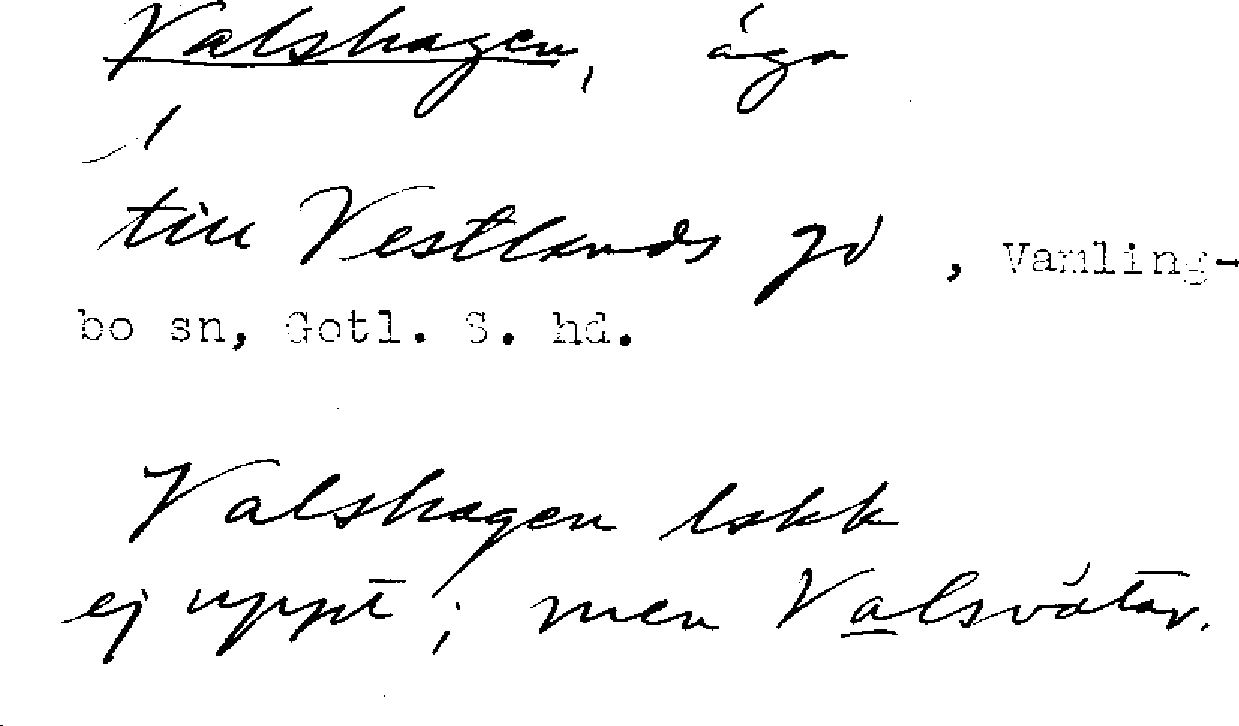 Valshagen, äga
till Vestlands gd, Vamling-
bo sn, Gotl. S. hd.
Valshagen lokk
ej uppt; men Valsvätar.